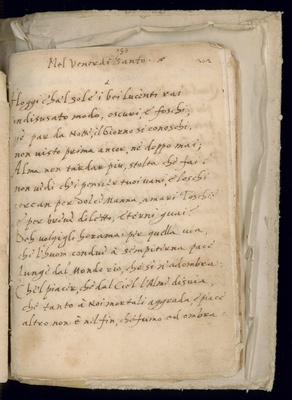 153
Nel Venerdi Santo.
202
Hoggi ch'al sole i bei lucenti rai
in disusato modo, oscuri, e foschi,
nè par da Notte, il Giorno si conoschi,
non visto prima ancor, nè doppo mai;
Alma non tardar più, stolta che fai?
non vedi ch'i pensier tuoi vani, e loschi
cercan per dolce Manna, amari Toschi
e per breve diletto, eterni guai?
Deh volgigli hor ama per quella via,
che l'huom conduce à sempiterna pace
lungi dal Mondo rio, che si n'adombra
Ch'el piacer, che dal Ciel l'Alme disvia,
che tanto à Noi mortali aggrada, e piace
altro non è nil fin, che fumo ed ombra.